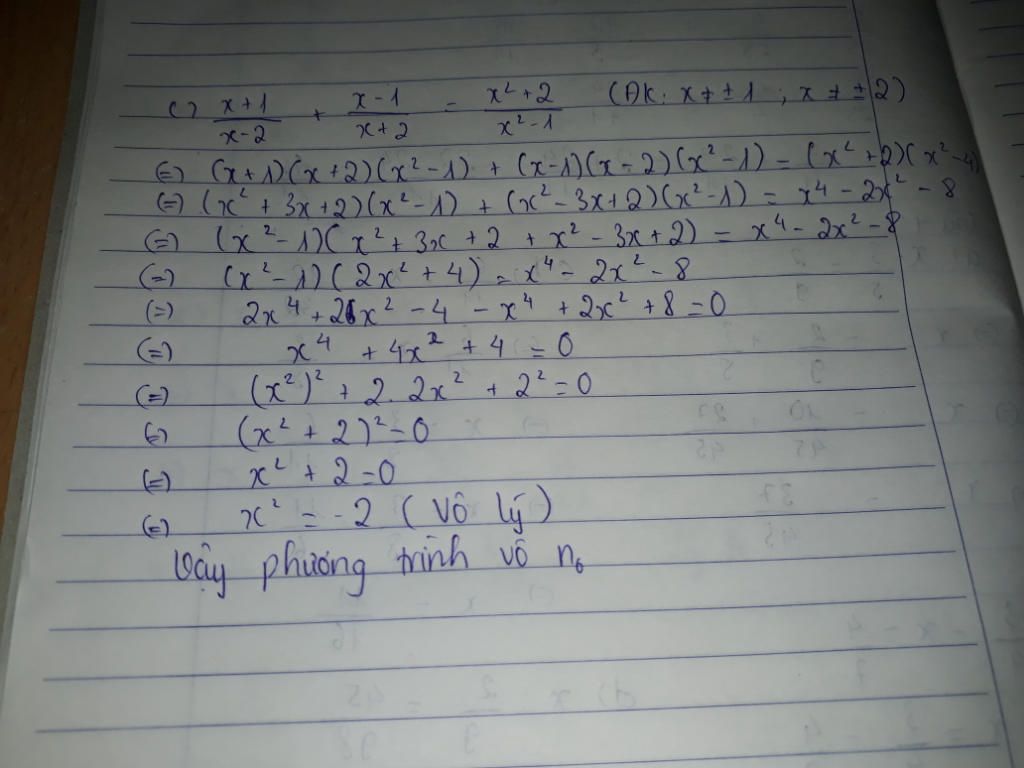 c) x+1/x-2 + x-1/x+2 = x²+2/x²-1 (ĐK: x ≠ ±1 ; x ≠ ±2)
(=) (x+1)(x+2)(x²-1) + (x-1)(x-2)(x²-1) = (x²+2)(x²-4)
(=) (x²+3x+2)(x²-1) + (x²-3x+2)(x²-1) = x⁴-2x²-8
(=) (x²-1)(x²+3x+2+x²-3x+2) = x⁴-2x²-8
(=) (x²-1)(2x²+4) = x⁴-2x²-8
(=) 2x⁴+2x²-4-x⁴+2x²+8=0
(=) x⁴+4x²+4=0
(=) (x²)²+2.2x²+2²=0
(=) (x²+2)²=0
(=) x²+2=0
(=) x²=-2 (Vô lý)
Vậy phương trình vô n₀